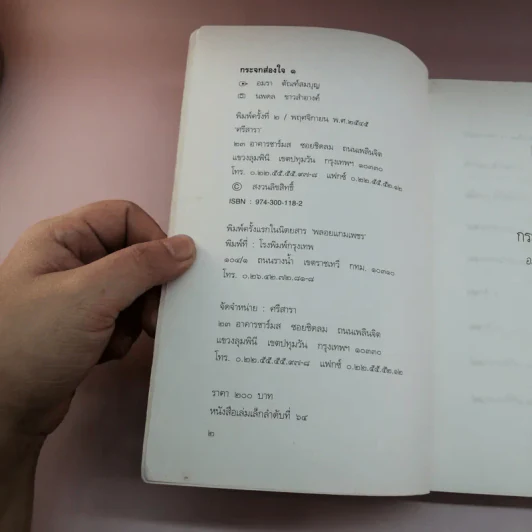 กระจกส่องใจ ๑
อมรา ตัณฑ์สมบุญ
นพดล ขาวสำอางค์
พิมพ์ครั้งที่ ๒ / พฤศจิกายน พ.ศ.๒๕๔๕
ศรีสารา
๒๓ อาคารชาร์มส ซอยชิดลม ถนนเพลินจิต
แขวงลุมพินี เขตปทุมวัน กรุงเทพฯ ๑๐๓๓๐
โทร. ๐.๒๒.๕๕.๕๕.๙๗-๘ แฟกซ์ ๐.๒๒.๕๕.๕๒.๒๒
© สงวนลิขสิทธิ์
ISBN : 974-300-118-2
พิมพ์ครั้งแรกในนิตยสาร 'พลอยแกมเพชร'
พิมพ์ที่ : โรงพิมพ์กรุงเทพ
๑๐๔/๑ ถนนรางน้ำ เขตราชเทวี กทม. ๑๐๓๑๐
โทร. ๐.๒๖.๔๒.๗๒.๘๑-๘
จัดจำหน่าย : ศรีสารา
๒๓ อาคารชาร์มส ซอยชิดลม ถนนเพลินจิต
แขวงลุมพินี เขตปทุมวัน กรุงเทพฯ ๑๐๓๓๐
โทร. ๐.๒๒.๕๕.๕๕.๙๗-๘ แฟกซ์ ๐.๒๒.๕๕.๕๒.๒๒
ราคา ๒๐๐ บาท
หนังสือเล่มเล็กลำดับที่ ๖๔
๒
กร
อ